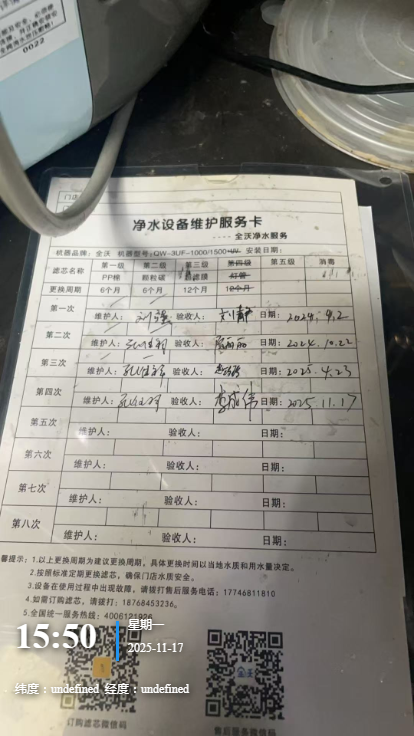 0022
净水设备维护服务卡
---- 全沃净水服务
机器品牌：全沃 机器型号：QW-3UF-1000/1500+UV 安装日期：
滤芯名称 第一级 第二级 第三级 第四级 第五级 消毒
PP棉 颗粒碳 超滤膜 红管
更换周期 6个月 6个月 12个月 12个月
第一次
维护人：刘强 验收人：刘静 日期：2024.9.2
第二次
维护人： 验收人： 日期：2024.10.22
第三次
维护人： 验收人： 日期：2025.4.23
第四次
维护人： 验收人：李成伟 日期：2025.11.17
第五次
维护人： 验收人： 日期：
第六次
维护人： 验收人： 日期：
第七次
维护人： 验收人： 日期：
第八次
维护人： 验收人： 日期：
馨提示：1.以上更换周期为建议更换周期，具体更换时间以当地水质和用水量决定。
2.按照标准定期更换滤芯，确保门店水质安全。
3.设备在使用过程中出现故障，请拨打售后服务电话：17746811810
4.如需订购滤芯，请拨打：18768453236。
5.全国统一服务热线：4006121826
15:50
星期一
2025-11-17
纬度：undefined 经度：undefined
订购滤芯微信码
售后服务微信码